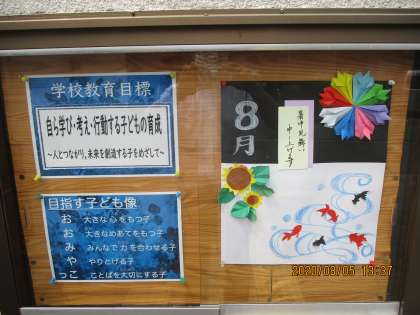 学校教育目標
自ら学び・考え・行動する子どもの育成
～人とつながり、未来を創造する子をめざして～
目指す子ども像
お 大きな心をもつ子
お 大きなめあてをもつ子
み みんなで力を合わせる子
や やりとげる子
っこ ことばを大切にする子
8月
暑中見舞い
申し上げます
2020/08/05 13:37